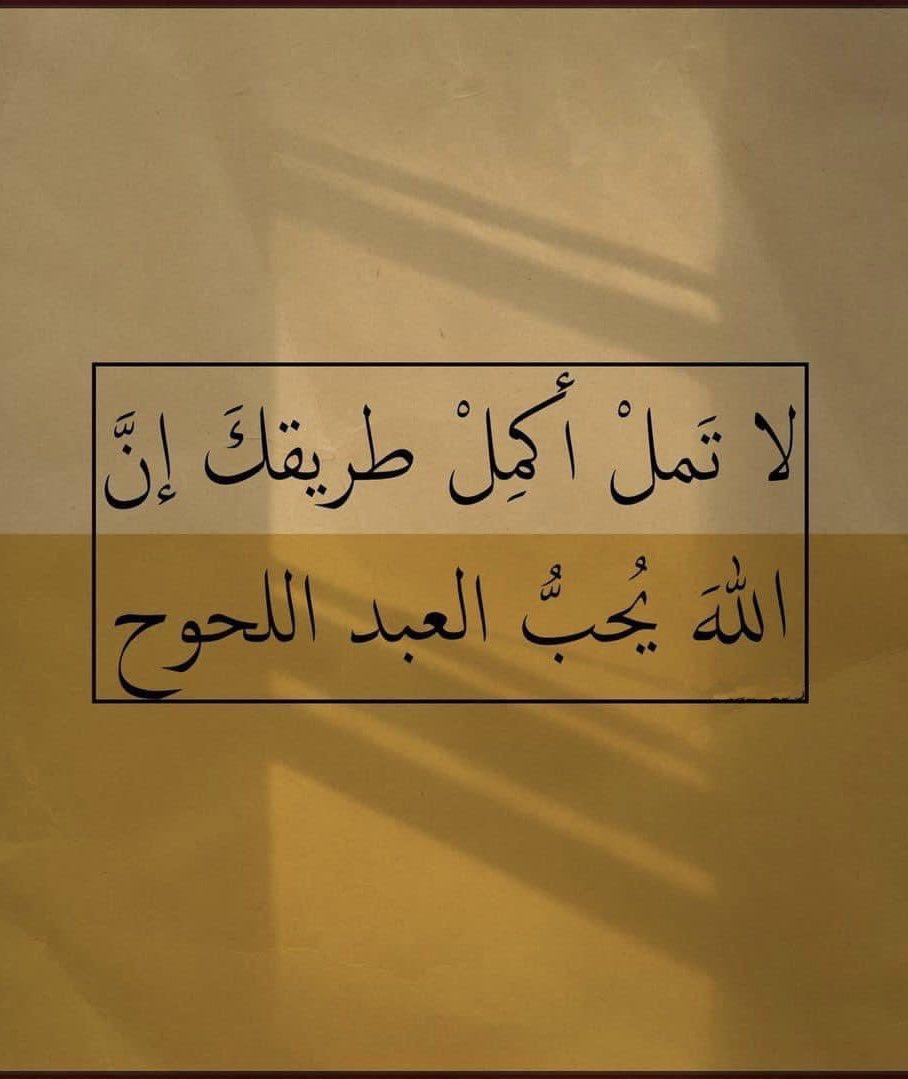 لا تَملْ أكمِلْ طريقكَ إنَّ
اللّٰهَ يُحبُّ العبد اللحوح